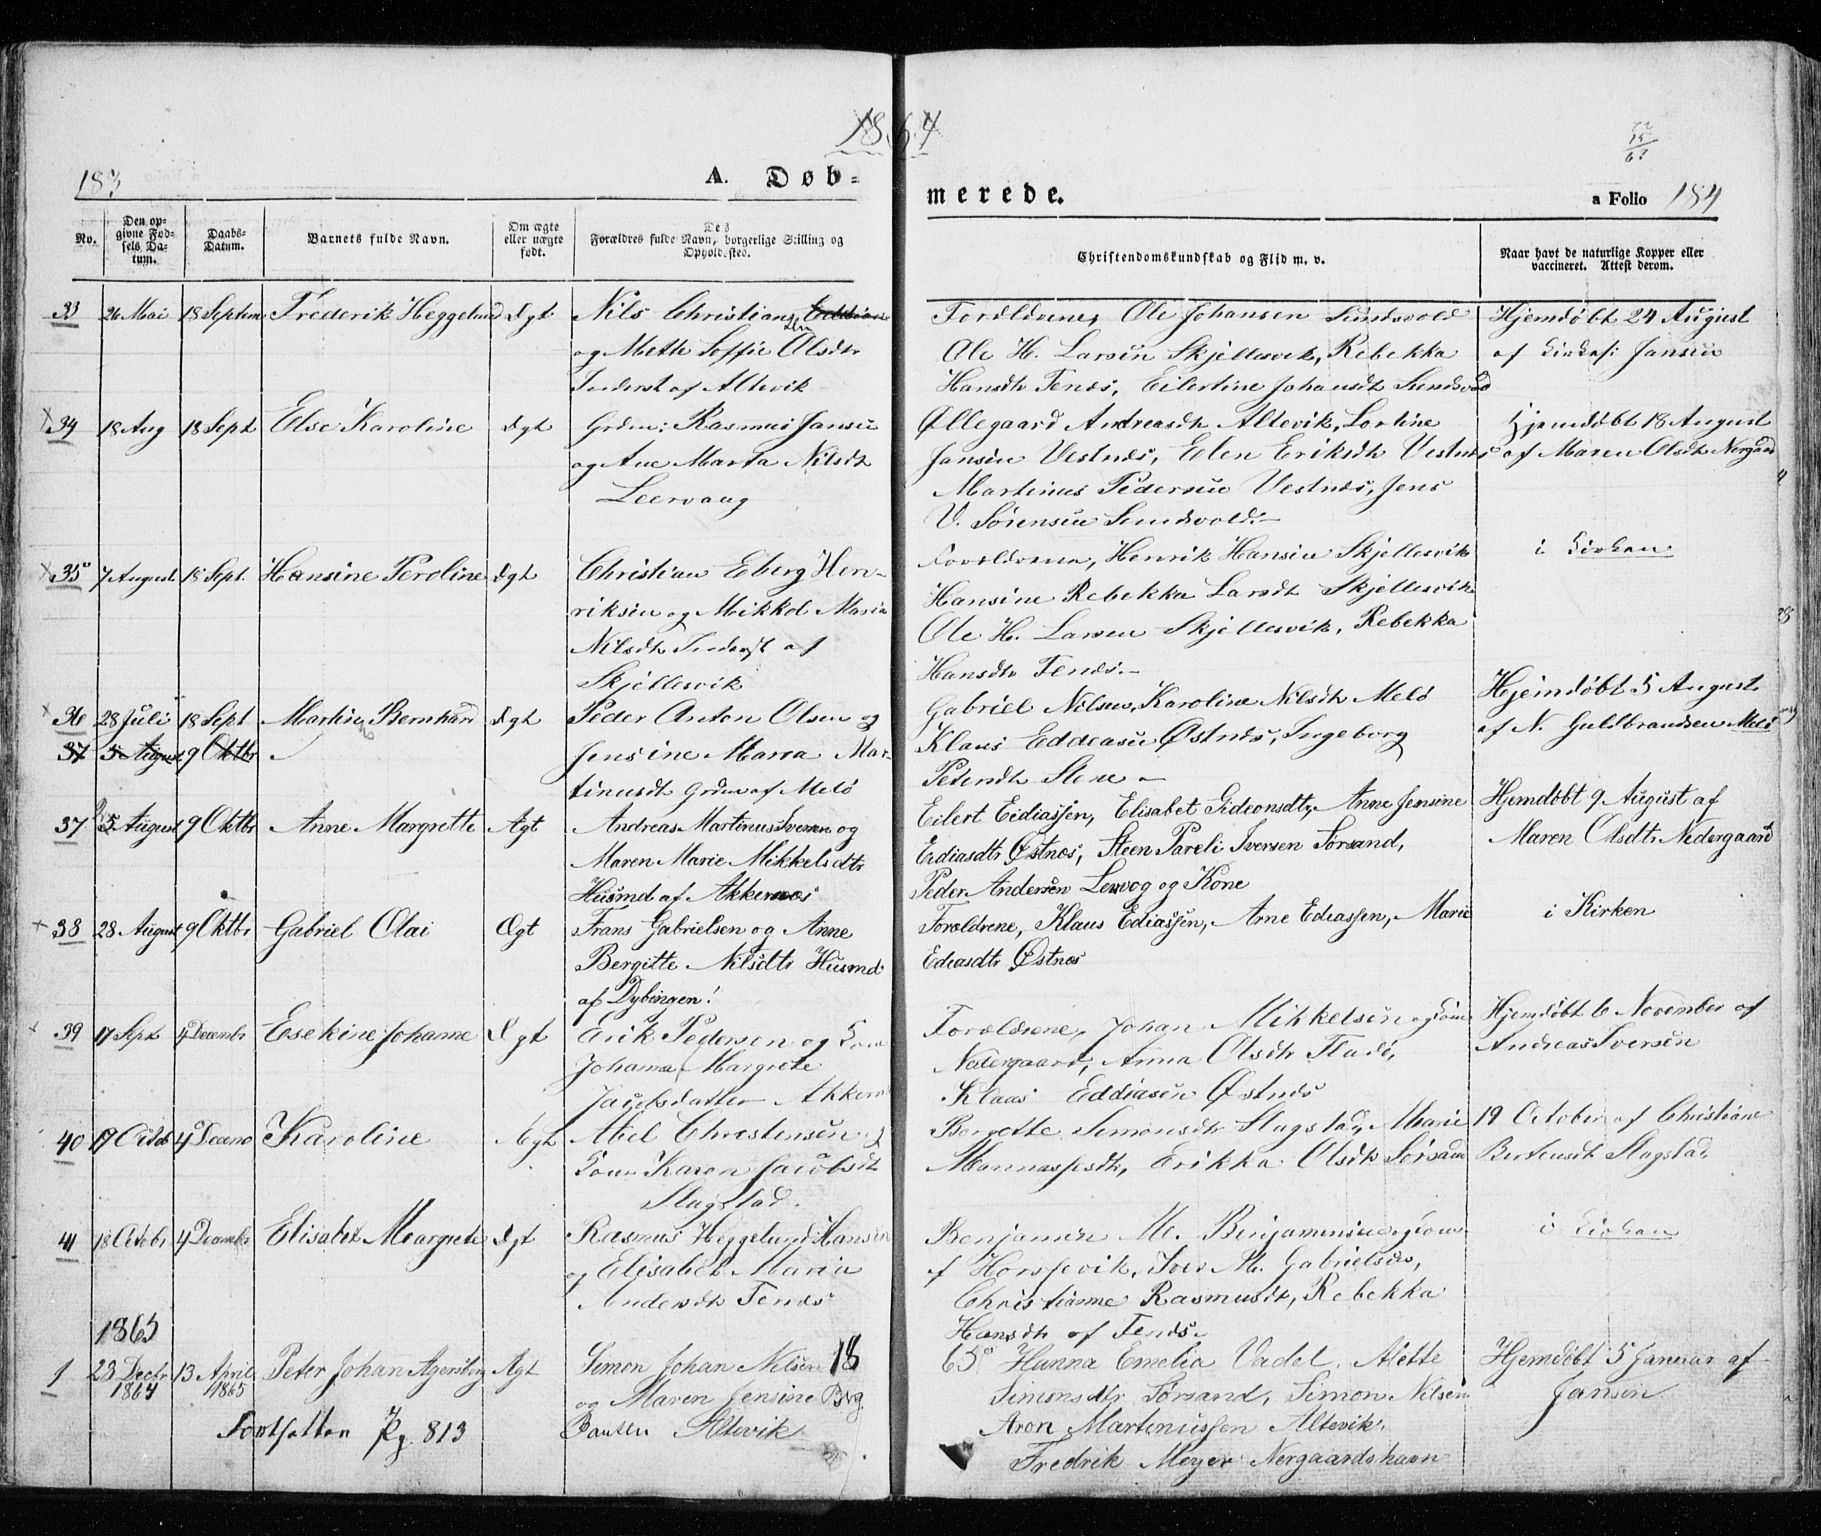 1864
183
A. Døb-
merede.
a Folio 184
No.
Den op-
givne Fød-
sels Da-
tum.
Daabs-
Datum.
Barnets fulde Navn.
Om ægte
eller uægte
født.
Des
Forældres fulde Navn, borgerlige Stilling og
Opholdssted.
Christendomskundskab og Flid m. v.
Naar havt de naturlige Kopper eller
vaccineret. Attest derom.
33 26 Mai 18 Septem Frederik Heggelund Ægt Nils Christian
og Mette Soffie Olsdtr
Inderst af Altevik
Forældrene, Ole Johansen Sundsvold
Ole H. Larsen Skjellesvik, Rebekka
Hansdtr Tenæs, Eilertine Johansdtr Sundsvold
Hjemdøbt 24 August
af Jansen
34 18 Aug 18 Sept Else Karoline Ægt Grdm: Rasmus Jansen
og Ane Marta Nilsdtr
Leervaag
Øllegaard Andreasdtr Altevik,
Jansen Vestnæs, Elen Eriksdtr Vestnæs
Martinus Pedersen Vestnæs, Jens
V. Sörensen Sundsvold.
Hjemdøbt 18 August
af Maren Olsdtr Nergaard
35 7 August 18 Sept. Hansine Peroline Ægt Christian Eberg Hen-
riksen og Mikkol Maria
Nilsdtr Inderst af
Skjellesvik
Forældrene, Henrik Hansen Skjellesvik
Hansine Rebekka Larsdtr Skjellesvik
Ole H. Larsen Skjellesvik, Rebekka
Hansdtr Tenæs.
i Kirken
36 28 Juli 18 Sept Martin Bernhard Ægt Peder Anton Olsen og
Jensine Maria Mar-
tinusdtr Grdm af Melö
Gabriel Nilsen, Karoline Nilsdtr Melö
Klaus Eddiasen Østnæs, Ingeborg
Petersdtr Stene
Hjemdöbt 5 August
af N. Guldbrandsen Melö
37 5 August 9 Oktbr
37 5 August 9 Oktbr Anne Margrette Ægt Andreas Martinus Iversen og
Maren Marie Mikkelsdtr
Husmd af Akkernæs
Eilert Eidiassen, Elisabet Gideonsdtr, Anne Jensine
Eidiasdtr Østnæs, Steen Pareli Iversen Sørsand,
Peder Andersen Lervog og Kone
Hjemdøbt 9 August af
Maren Olsdtr Nedergaard
38 28 August 9 Oktbr Gabriel Olai Ægt Frans Gabrielsen og Anne
Bergitte Nilsdtr Husmd
af Dybingen
Forældrene, Klaus Ediassen, Arne Ediassen, Marie
Ediasdtr Østnæs
i Kirken
39 17 Sept 4 Decembr Esekine Johanne Ægt Erik Pedersen og Kone
Johanna Margrete
Jacobsdatter Akkernæs
Forældrene, Johan Mikkelsen og Kone
Nedergaard, Anna Olsdtr Fladö,
Klaus Eddiasen Østnæs
Hjemdøbt 6 November af
Andreas Iversen
40 17 Octob 4 Decemb Karoline Ægt Abel Christensen og
Kone Karen Jacobsdtr
Slagstad.
Bergette Simonsdtr Slagstad, Marie
Mannassesdtr, Erikka Olsdtr Sörsand
19 October af Christiane
Bertensdtr Slagstad
41 18 Octobr 4 Decembr Elisabet Margrete Ægt Rasmus Heggelund Hansen
og Elisabet Maria
Andersdtr Tenæs
Benjamin M. Benjaminsen og Kone
af Horssevik, Iver M. Gabrielsen,
Christianne Rasmusdtr, Rebekka
Hansdtr af Tenæs.
i Kirken
1865
1 23 Decbr 1864 13 April 1865 Peter Johan Agersborg Ægt Simon Johan Nilsen
og Maren Jensine Brg
Altevik
1865
Hanna Emelia Vadel, Mette
Simonsdtr Sørsand, Simon Nilsen
Aron Martinussen Altevik,
Fredrik Meyer Nergaardshavn
Hjemdøbt 5 Januar af
Jansen
Fortsatten Pg. 813